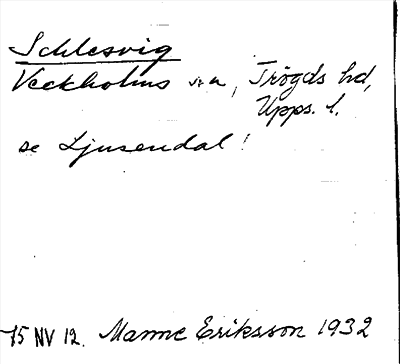 Schlesvig
Veckholms sn, Trögds hd,
Upps. l.
se Ljusendal!
75 NV 12. Manne Eriksson 1932